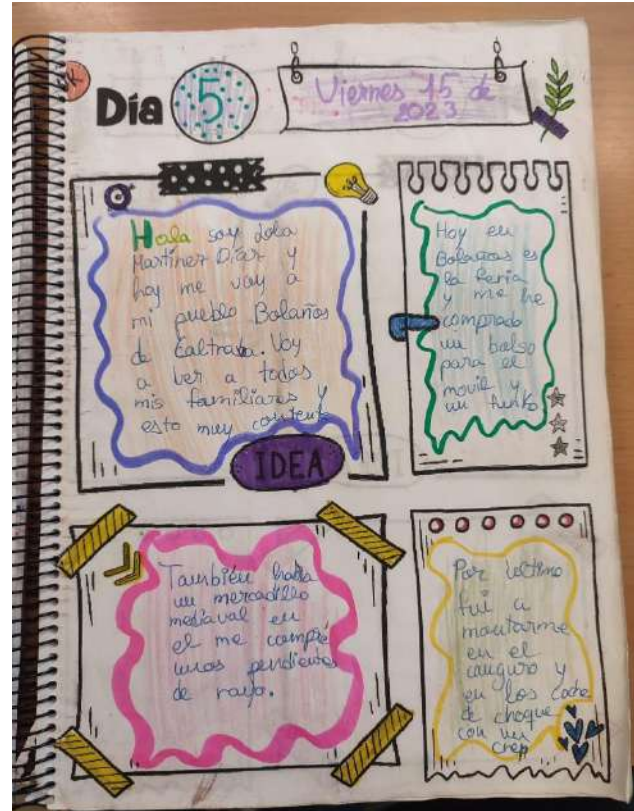 Día 5
Viernes 15 de
2023
Hola soy Lola
Martinez Díaz y
hoy me voy a
mi pueblo Bolaños
de Caltrava. Voy
a ver a todos
mis familiares y
esto muy contenta
IDEA
Hoy en
Bolaños es
la feria
y me he
comprado
un bolso
para el
movil y
un funko
También había
un mercadillo
mediaval en
el me compré
unos pendientes
de rayo.
Por ultimo
fui a
montarme
en el
canguro y
en los coche
de choque
con un
crep